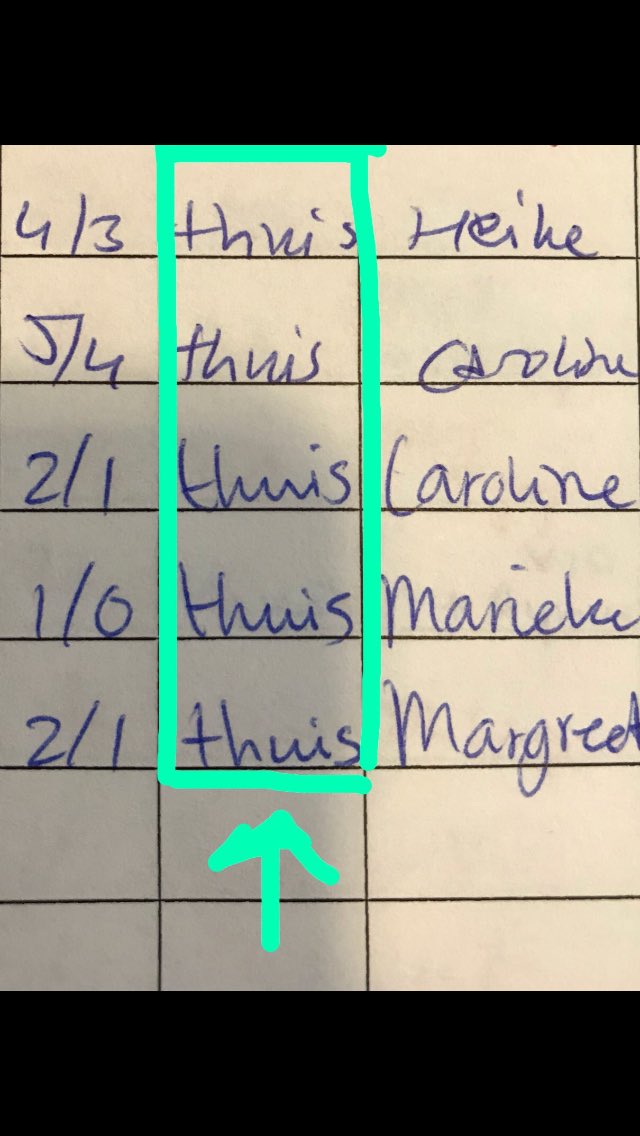 4/3 thuis Heike
5/4 thuis Caroline
2/1 thuis Caroline
1/0 thuis Marieke
2/1 thuis Margreet